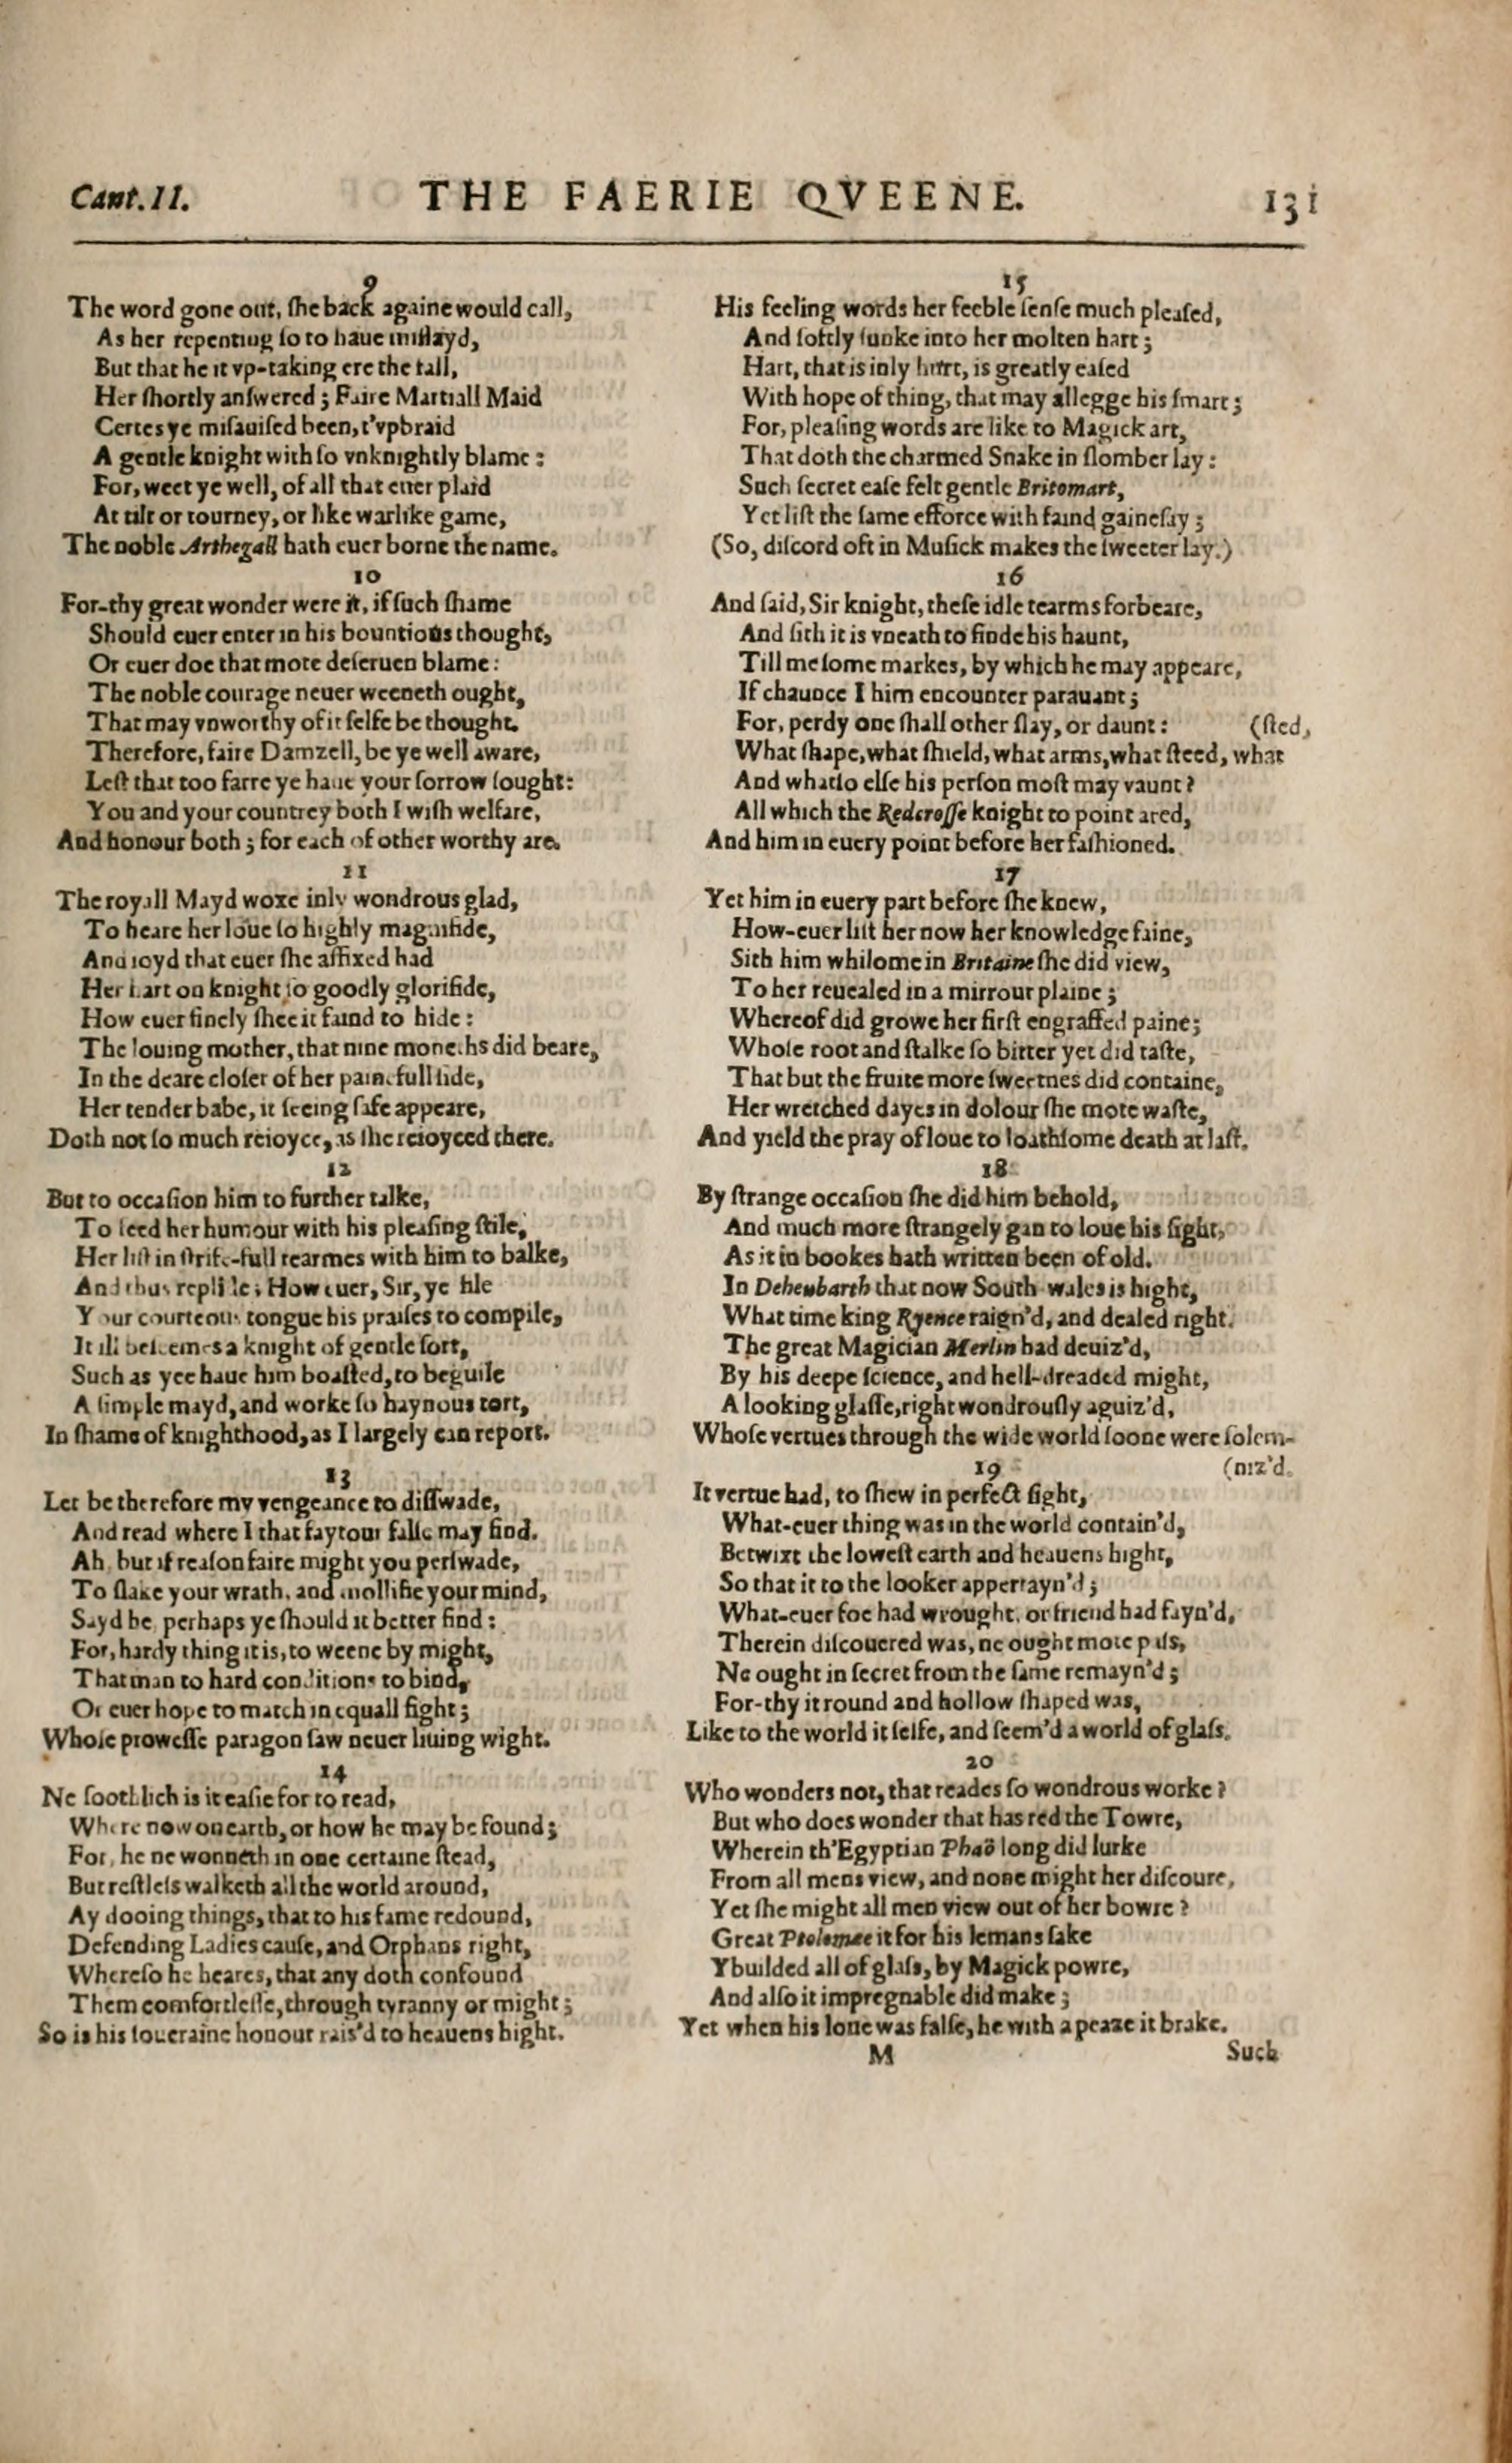 Cant. II.
THE FAERIE QVEENE.
131
9
The word gone out, ſhe back againe would call,
As her repenting ſo to haue miſſayd,
But that he it vp-taking ere the fall,
Her ſhortly anſwered; Faire Martiall Maid
Certes ye miſauiſed been, t'vpbraid
A gentle knight with ſo vnknightly blame:
For, weet ye well, of all that euer plaid
At tilt or tourney, or like warlike game,
The noble Arthegall hath euer borne the name.
10
For-thy great wonder were it, if ſuch ſhame
Should euer enter in his bountious thought,
Or euer doe that mote deſeruen blame:
The noble courage neuer weeneth ought,
That may vnworthy of it ſelfe be thought.
Therefore, faire Damzell, be ye well aware,
Leſt that too farre ye haue your ſorrow ſought:
You and your countrey both I wiſh welfare,
And honour both; for each of other worthy are.
11
The royall Mayd woxe inly wondrous glad,
To heare her loue ſo highly magnifide,
And ioyd that euer ſhe affixed had
Her hart on knight ſo goodly glorifide,
How euer finely ſhee it faind to hide:
The louing mother, that nine moneths did beare,
In the deare cloſet of her painefull ſide,
Her tender babe, it ſeeing ſafe appeare,
Doth not ſo much reioyce, as ſhe reioyced there.
12
But to occaſion him to further talke,
To feed her humour with his pleaſing ſtile,
Her liſt in ſtrife-full tearmes with him to balke,
And thus replide; How euer, Sir, ye file
Your courteous tongue his praiſes to compile,
It ill beſeemes a knight of gentle ſort,
Such as yee haue him boaſted, to beguile
A ſimple mayd, and worke ſo haynous tort,
In ſhame of knighthood, as I largely can report.
13
Let be therefore my vengeance to diſſwade,
And read where I that faytour falſe may find.
Ah, but if reaſon faire might you perſwade,
To ſlake your wrath, and mollifie your mind,
Sayd he, perhaps ye ſhould it better find:
For, hardy thing it is, to weene by might,
That man to hard conditions to bind,
Or euer hope to match in equall fight;
Whoſe proweſſe paragon ſaw neuer liuing wight.
14
Ne ſoothlich is it eaſie for to read,
Where now on earth, or how he may be found;
For, he ne wonneth in one certaine ſtead,
But reſtleſs walketh all the world around,
Ay dooing things, that to his fame redound,
Defending Ladies cauſe, and Orphans right,
Whereſo he heares, that any doth confound
Them comfortleſſe, through tyranny or might;
So is his ſoueraine honour rais'd to heauens hight.
15
His feeling words her feeble ſenſe much pleaſed,
And ſoftly ſunke into her molten hart;
Hart, that is inly hurt, is greatly eaſed
With hope of thing, that may allegge his ſmart;
For, pleaſing words are like to Magick art,
That doth the charmed Snake in ſlomber lay:
Such ſecret eaſe felt gentle Britomart,
Yet liſt the ſame efforce with faind gaineſay;
(So, diſcord oft in Muſick makes the ſweeter lay.)
16
And ſaid, Sir knight, theſe idle tearms forbeare,
And ſith it is vneath to finde his haunt,
Tell me ſome markes, by which he may appeare,
If chaunce I him encounter parauant;
For, perdy one ſhall other ſlay, or daunt:
(ſted,
What ſhape, what ſhield, what arms, what ſteed, what
And whatſo elſe his perſon moſt may vaunt?
All which the Redcroſſe knight to point ared,
And him in euery point before her faſhioned.
17
Yet him in euery part before ſhe knew,
How-euer liſt her now her knowledge faine,
Sith him whilome in Britaine ſhe did view,
To her reuealed in a mirrour plaine;
Whereof did growe her firſt engraffed paine;
Whoſe root and ſtalke ſo bitter yet did taſte,
That but the fruite more ſweetnes did containe,
Her wretched dayes in dolour ſhe mote waſte,
And yield the pray of loue to loathſome death at laſt.
18
By ſtrange occaſion ſhe did him behold,
And much more ſtrangely gan to loue his ſight,
As it in bookes hath written been of old.
In Deheubarth that now South-wales is hight,
What time king Ryence raign'd, and dealed right.
The great Magician Merlin had deuiz'd,
By his deepe ſcience, and hell-dreaded might,
A looking glaſſe, right wondrouſly aguiz'd,
Whoſe vertues through the wide world ſoone were ſolem-
(niz'd.
19
It vertue had, to ſhew in perfect ſight,
What-euer thing was in the world contain'd,
Betwixt the loweſt earth and heauens hight,
So that it to the looker appertayn'd;
What-euer foe had wrought, or friend had fayn'd,
Therein diſcouered was, ne ought mote paſs,
Ne ought in ſecret from the ſame remayn'd;
For-thy it round and hollow ſhaped was,
Like to the world it ſelfe, and ſeem'd a world of glaſs.
20
Who wonders not, that reades ſo wondrous worke?
But who does wonder that has red the Towre,
Wherein th'Egyptian Phaö long did lurke
From all mens view, and none might her diſcoure,
Yet ſhe might all men view out of her bowre?
Great Ptolomæe it for his lemans ſake
Ybuilded all of glaſs, by Magick powre,
And alſo it impregnable did make;
Yet when his loue was falſe, he with a peaze it brake.
M
Such